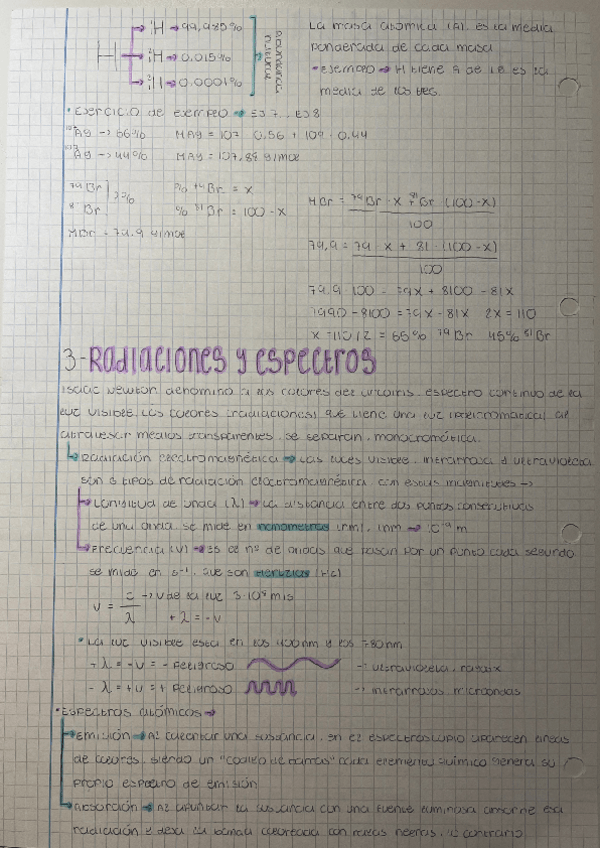 H → ¹H → 99,985%
→ ²H → 0.015%
→ ³H → 0.0001%
La masa atómica (A). es la media
ponderada de cada masa
• ejemplo → H tiene
media de los tres.
• Ejercicio de ejemplo → Ej 7... Ej 8
Ag → 56% MAg = 107 · 0,56 + 109 · 0.44
Ag → 44% MAg = 107,88 g/mol
⁷⁹Br ] ?% % ⁷⁹Br = x
⁸¹Br % ⁸¹Br = 100 - x
MBr = 79.9 g/mol
MBr = ⁷⁹Br · x + ⁸¹Br (100-x)
100
79,9 = 79 x + 81 · (100-x)
100
79.9 · 100 = 79x + 8100 - 81x
7990 - 8100 = 79x - 81x 2x = 110
x = 110/2 = 55% ⁷⁹Br 45% ⁸¹Br
3-Radiaciones y espectros
Isaac Newton denominó a los colores del arcoiris, espectro continuo de la
luz visible. Los colores (radiaciones) que tiene una luz (policromática) al
atravesar medios transparentes, se separan, monocromática.
↳ Radiación electromagnética → Las luces visible, infrarroja y ultravioleta
son 3 tipos de radiación electromagnética con estas magnitudes →
→ Longitud de onda (λ) → La distancia entre dos puntos consecutivos
de una onda. se mide en nanometros (nm). 1nm → 10⁻⁹m
→ Frecuencia (ν) → Es el nº de ondas que pasan por un punto cada segundo
se mide en s⁻¹, que son Hertzios (Hz)
ν = c/λ → v de la luz 3·10⁸ m/s
+ λ = - ν
• La luz visible esta en los 400nm y los 780nm
+ λ = - ν = - peligroso → ultravioleta, rayos x
- λ = + ν = + peligroso → infrarrojos, microondas
• Espectros atómicos →
→ Emisión → Al calentar una sustancia, en el espectroscopio aparecen líneas
de colores, siendo un "código de barras" cada elemento químico genera su
propio espectro de emisión
→ Absorción → Al alumbrar la sustancia con una fuente luminosa absorbe esa
radiación y deja la banda coloreada con rayas negras, lo contrario